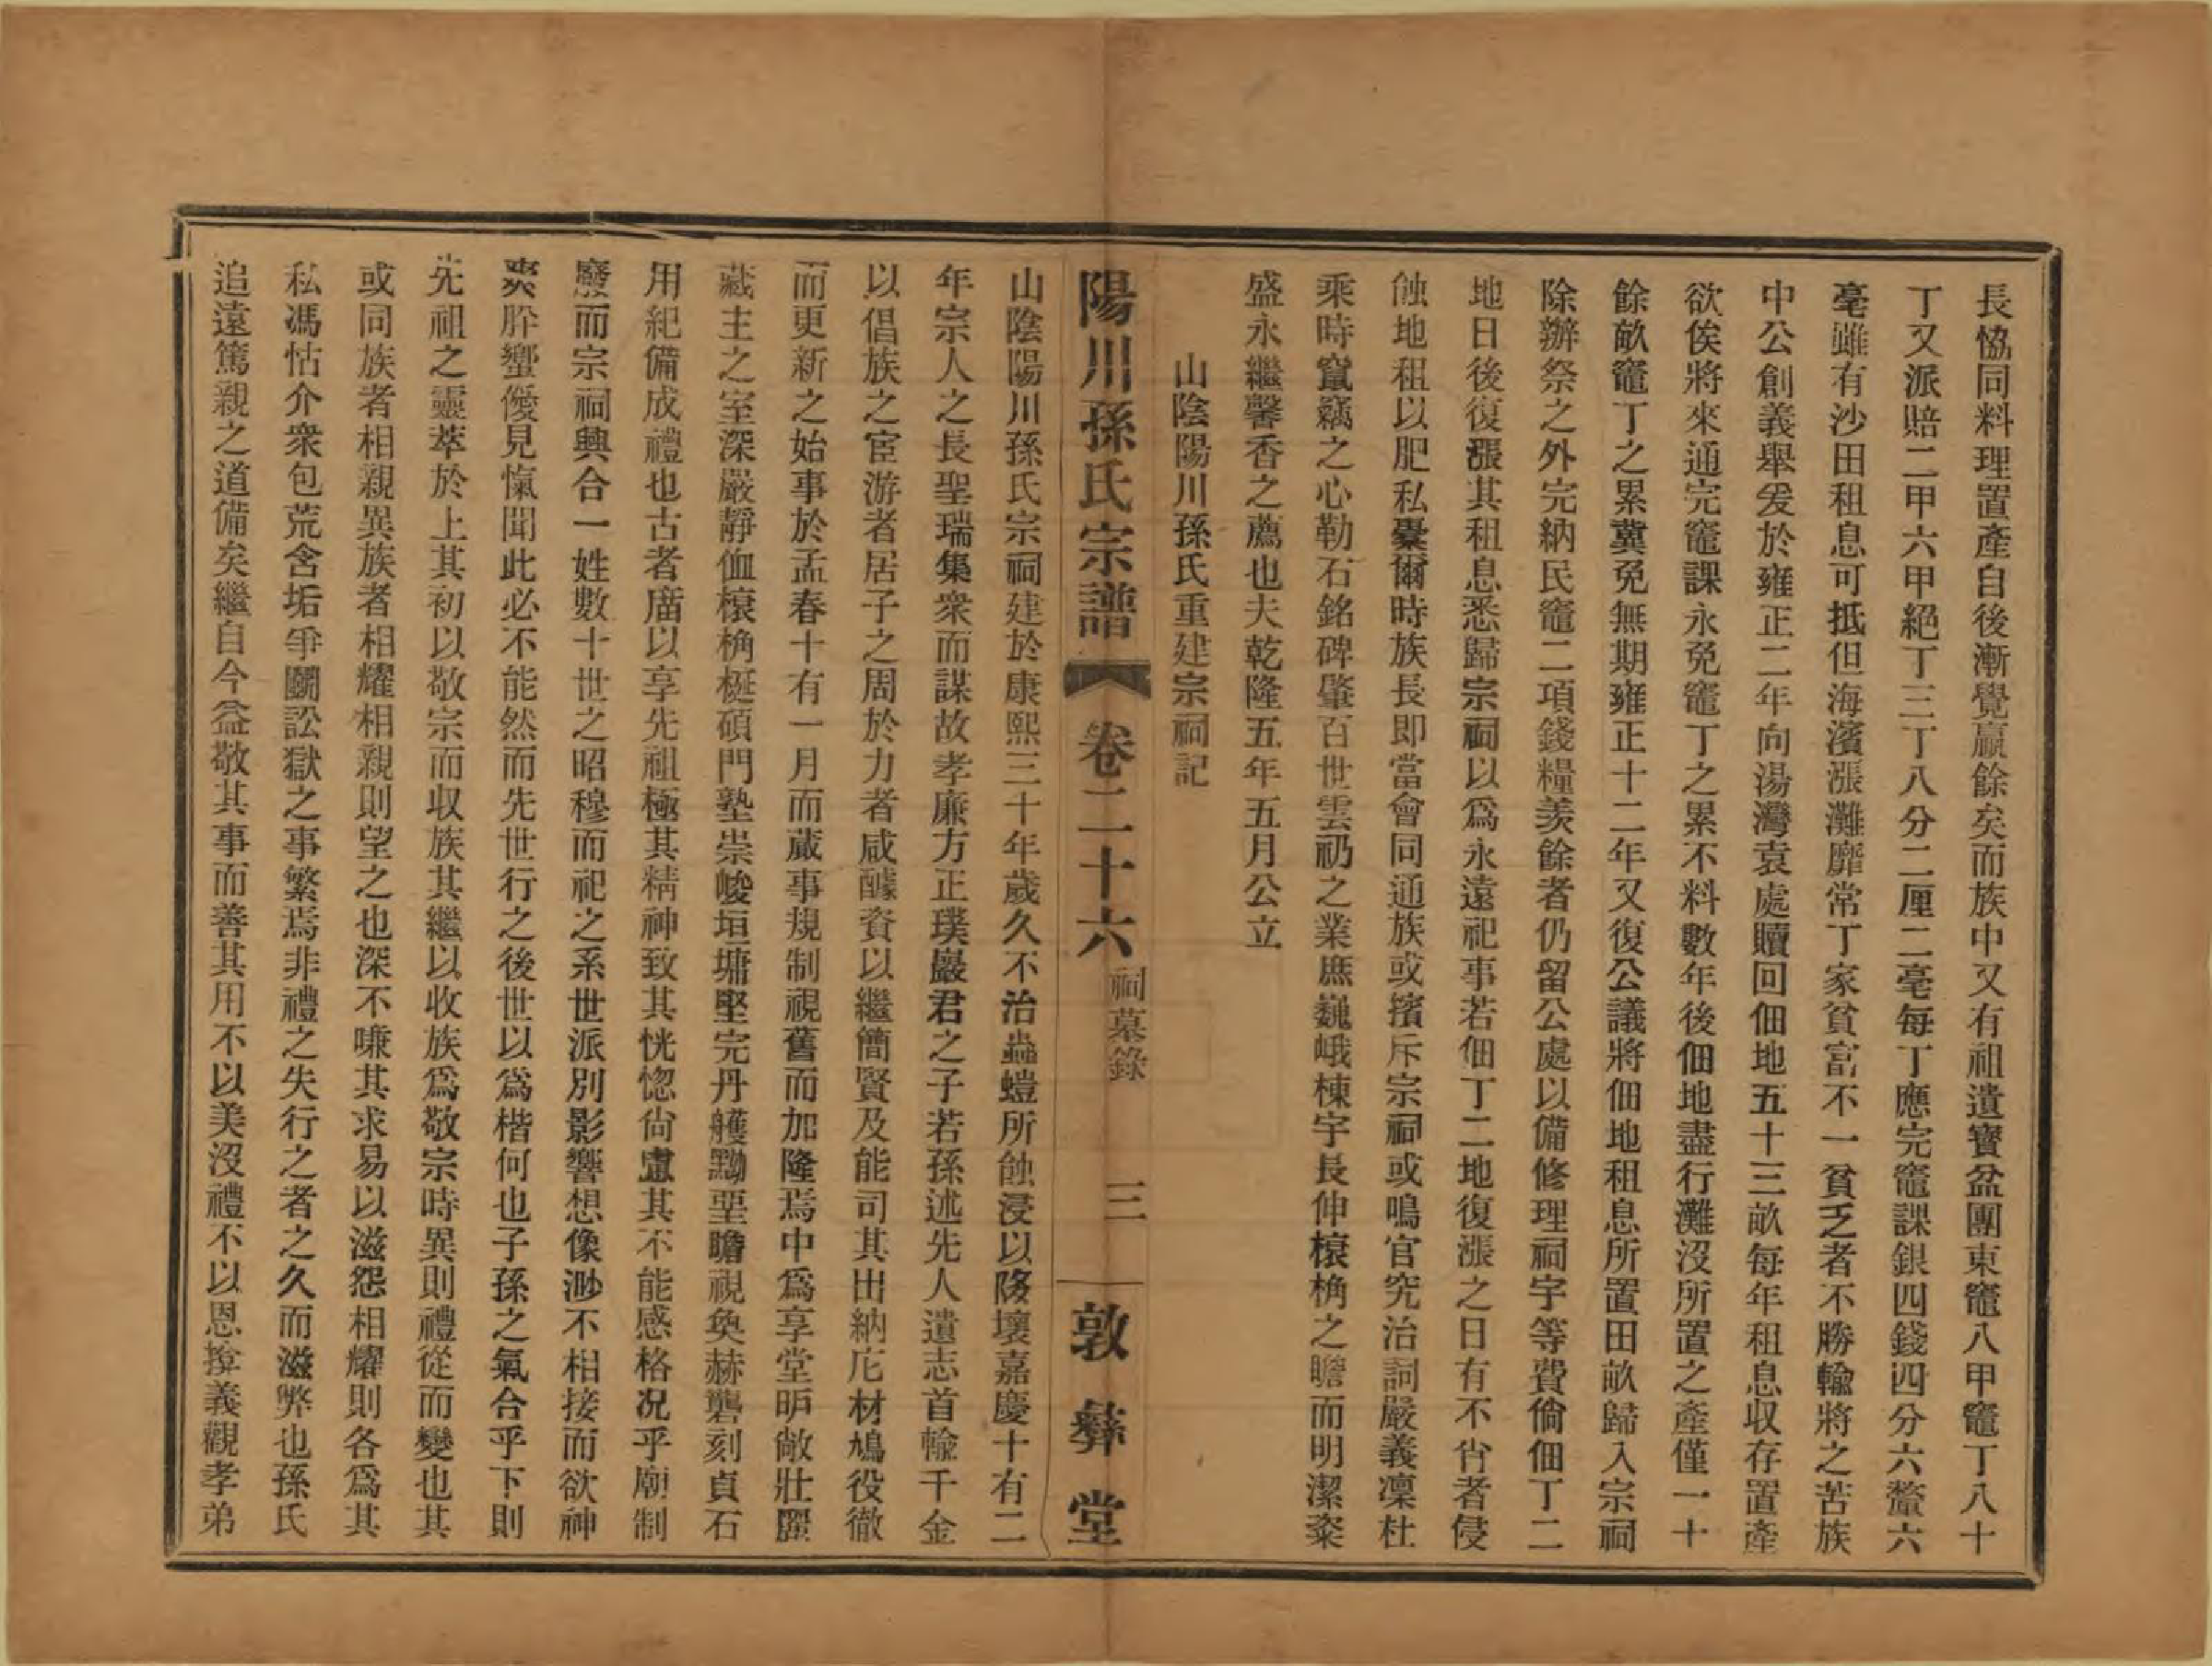 長恊同料理置產自後漸覺贏餘矣而族中又有祖遺寶盆團東竈八甲竈丁八十
丁又派賠二甲六甲絕丁三丁八分二厘二毫每丁應完竈課銀四錢四分六釐六
毫雖有沙田租息可抵但海濱漲灘靡常丁家貧富不一貧乏者不勝輸將之苦族
中公創義舉爰於雍正二年向湯灣袁處贖回佃地五十三畝每年租息収存置產
欲俟將來通完竈課永免竈丁之累不料數年後佃地盡行灘沒所置之產僅一十
餘畝竈丁之累冀免無期雍正十二年又復公議將佃地租息所置田畝歸入宗祠
除辦祭之外完納民竈二項錢糧羨餘者仍留公處以備修理祠宇等費倘佃丁二
地日後復漲其租息悉歸宗祠以爲永遠祀事若佃丁二地復漲之日有不肖者侵
蝕地租以肥私槖爾時族長即當會同通族或擯斥宗祠或鳴官究治詞嚴義凜杜
乘時竄竊之心勒石銘碑肇百世雲礽之業庶巍峨棟宇長伸榱桷之瞻而明潔粢
盛永繼馨香之薦也夫乾隆五年五月公立
山陰陽川孫氏重建宗祠記
陽川孫氏宗譜 卷二十六 祠墓錄 三 敦彝堂
山陰陽川孫氏宗祠建於康熙三十年歲久不治蟲螘所蝕浸以隊壞嘉慶十有二
年宗人之長聖瑞集衆而謀故孝廉方正璞巖君之子若孫述先人遺志首輸千金
以倡族之宦游者居子之周於力者咸醵資以繼簡賢及能司其出納庀材鳩役徹
而更新之始事於孟春十有一月而蕆事規制視舊而加隆焉中爲享堂明敞壯麗
藏主之室深嚴靜侐榱桷梴碩門塾崇峻垣墉堅完丹雘黝堊瞻視奐赫礱刻貞石
用紀備成禮也古者廟以享先祖極其精神致其恍惚尙慮其不能感格况乎廟制
廢而宗祠興合一姓數十世之昭穆而祀之系世派別影響想像渺不相接而欲神
爽肸蠁僾見愾聞此必不能然而先世行之後世以爲楷何也子孫之氣合乎下則
先祖之靈萃於上其初以敬宗而収族其繼以收族爲敬宗時異則禮從而變也其
或同族者相親異族者相耀相親則望之也深不嗛其求易以滋怨相耀則各爲其
私馮怙介衆包荒含垢爭鬭訟獄之事繁焉非禮之失行之者之久而滋弊也孫氏
追遠篤親之道備矣繼自今益敬其事而善其用不以美沒禮不以恩揜義觀孝弟